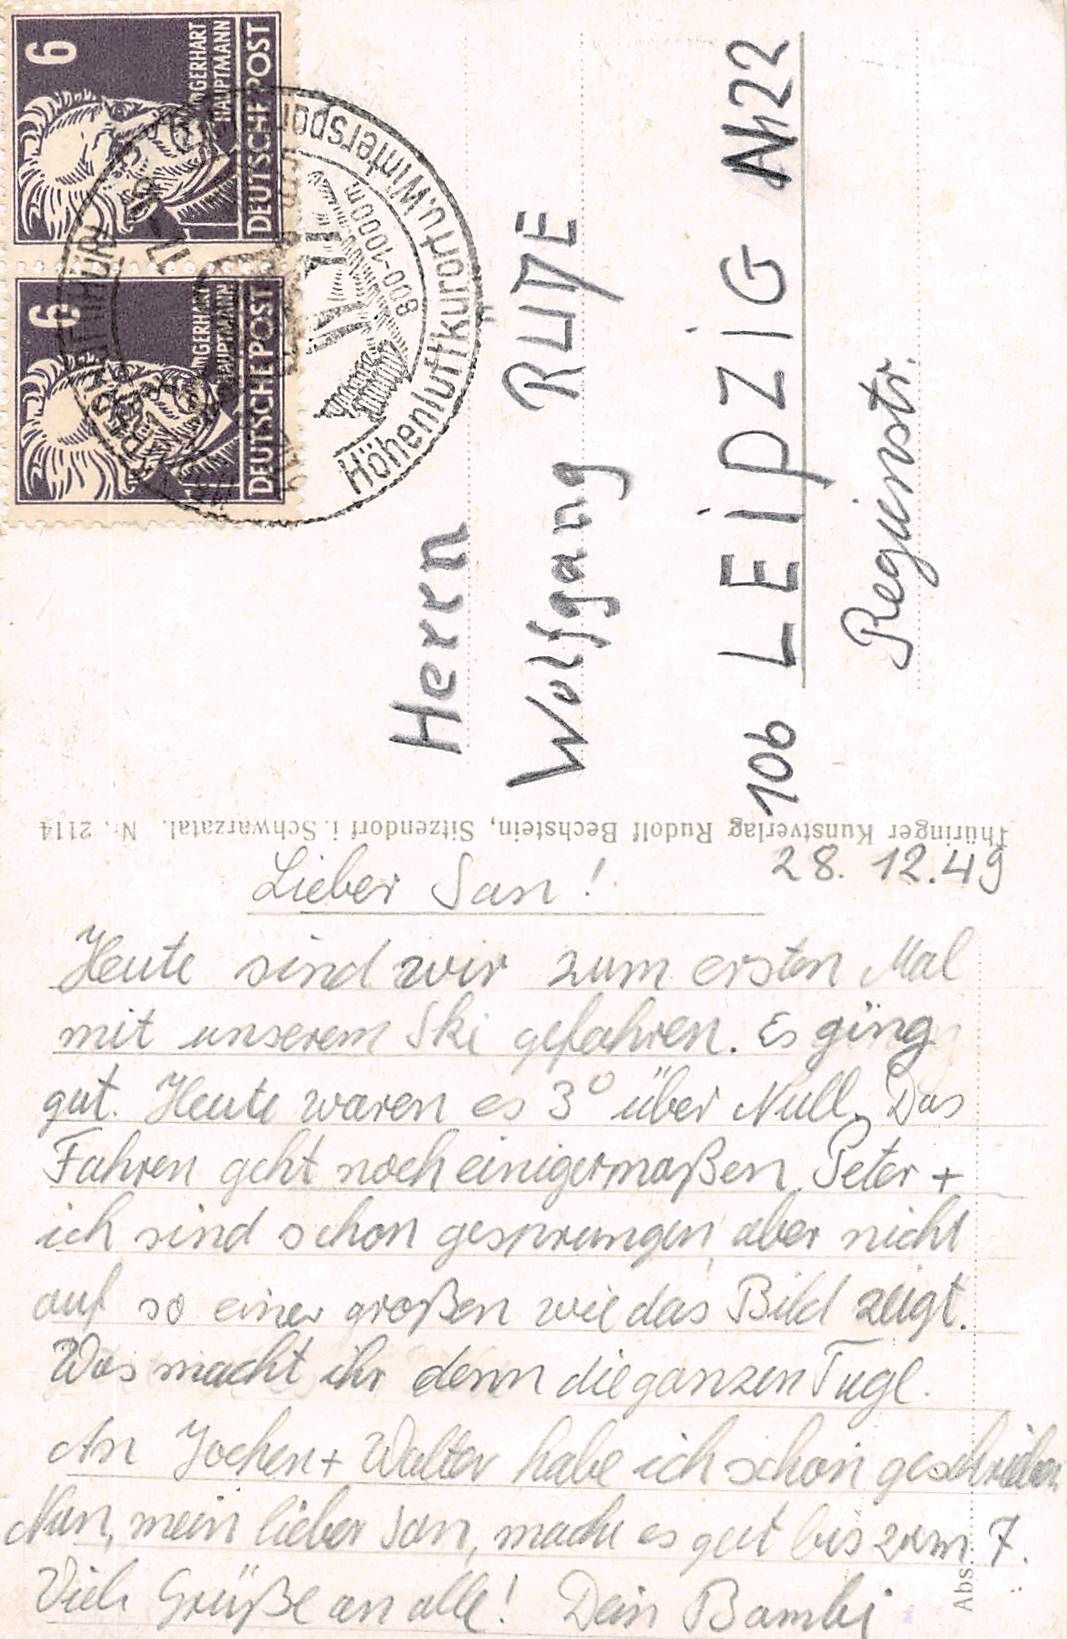 6
GERHART
HAUPTMANN
DEUTSCHE POST
6
GERHART
HAUPTMANN
DEUTSCHE POST
Höhenluftkurort u. Winterspor
800-1000m
Herrn
Wolfgang RUPE
10b LEIPZIG N22
Reginstr.
Thüringer Kunstverlag Rudolf Bechstein, Sitzendorf i. Schwarzatal. Nr. 2114
28. 12. 49
Lieber San!
Heute sind wir zum ersten Mal
mit unserem Ski gefahren. Es ging
gut. Heute waren es 3° über Null. Das
Fahren geht noch einigermaßen. Peter +
ich sind schon gesprungen, aber nicht
auf so einer großen wie das Bild zeigt.
Was macht ihr denn die ganzen Tage.
An Jochen + Walter habe ich schon geschrieben
Nun, mein lieber San, mache es gut bis zum 7.
Viele Grüße an alle! Dein Bambi
Abs.: